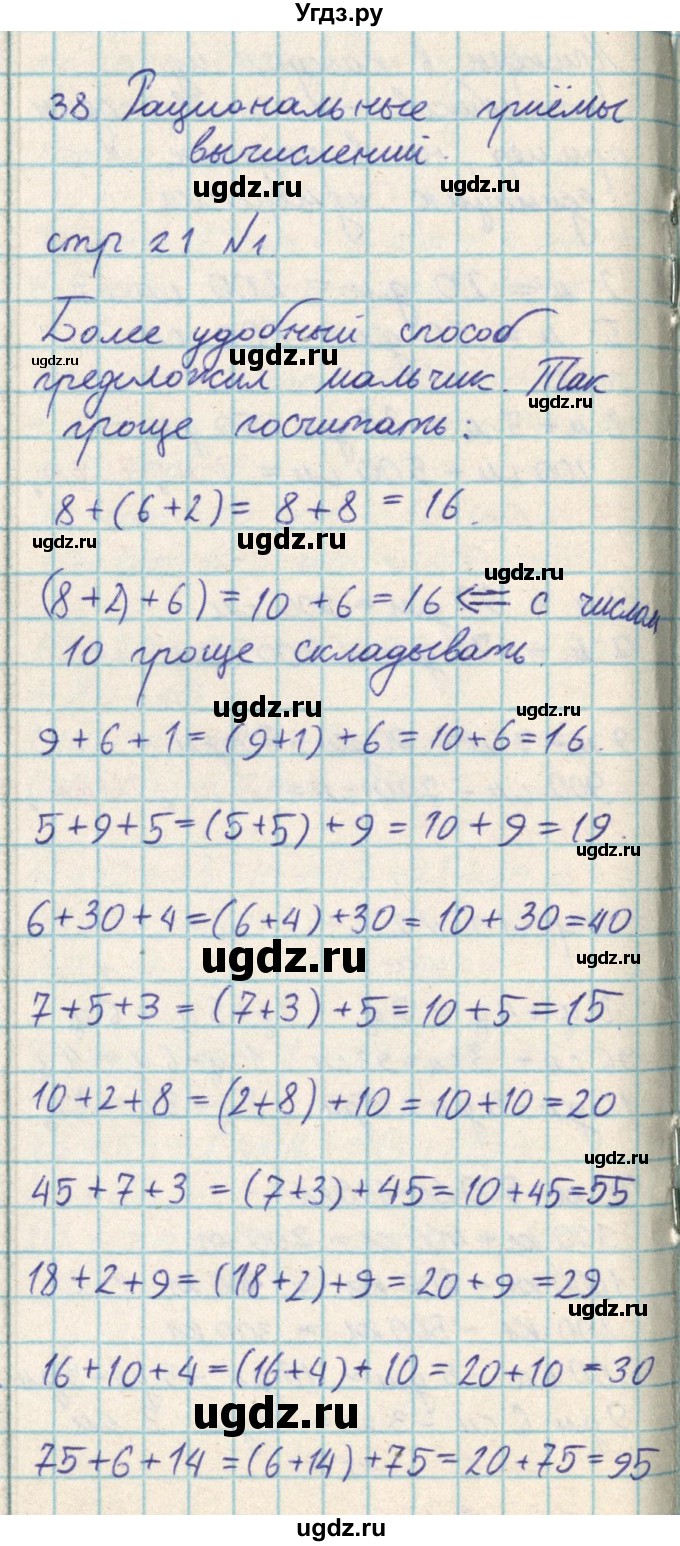 Угдз.ру
38 Рациональные приёмы
вычислений.
ugdz.ru ugdz.ru
стр 21 №1.
Более удобный способ
ugdz.ru ugdz.ru
предложил мальчик. Так
ugdz.ru
проще посчитать:
8+(6+2)= 8+8 = 16.
ugdz.ru ugdz.ru
ugdz.ru
(8+2)+6)=10+6=16 ⇐ с числом
10 проще складывать.
ugdz.ru ugdz.ru
9+6+1= (9+1)+6=10+6=16.
5+9+5=(5+5)+9=10+9=19.
ugdz.ru
6+30+4=(6+4)+30=10+30=40
ugdz.ru ugdz.ru
7+5+3 = (7+3)+5=10+5=15
10+2+8 =(2+8)+10=10+10=20
ugdz.ru
45+7+3 =(7+3)+45=10+45=55
18+2+9=(18+2)+9=20+9=29
ugdz.ru
16+10+4=(16+4)+10=20+10=30
ugdz.ru
75+6+14=(6+14)+75=20+75=95
ugdz.ru